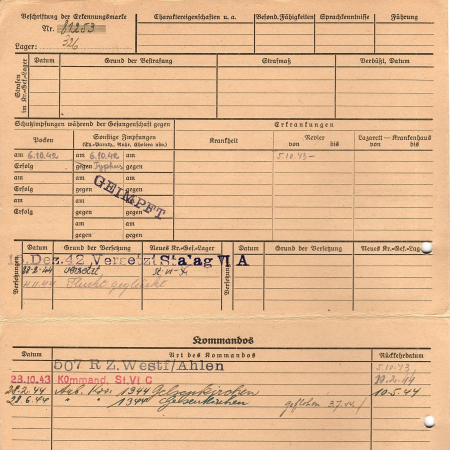 Beschriftung der Erkennungsmarke
Nr. 81253
Lager: 326
Charaktereigenschaften u. a.
Besond. Fähigkeiten
Sprachkenntnisse
Führung
Strafen im Kr.-Gef.-Lager
Datum
Grund der Bestrafung
Strafmaß
Verbüßt, Datum
Schutzimpfungen während der Gefangenschaft gegen
Erkrankungen
Pocken
Sonstige Impfungen
(Ty.-Paraty., Ruhr, Cholera usw.)
Krankheit
Revier
von bis
Lazarett — Krankenhaus
von bis
am 6.10.42 am 6.10.42 am
5.10.43-
Erfolg gegen Typhus gegen
am am am
Erfolg gegen gegen
am am am
Erfolg gegen gegen
am am
gegen gegen
GEIMPFT
Versetzungen
Datum
Grund der Versetzung
Neues Kr.-Gef.-Lager
Versetzungen
Datum
Grund der Versetzung
Neues Kr.-Gef.-Lager
Dez. 42 Versetzt Stalag VI A
versetzt
Flucht geglückt
Kommandos
Datum
Art des Kommandos
Rückkehrdatum
507 R Z. Westf/Ahlen
5.10.43
23.10.43 Kommand. St. VI C
28.2.44 1944 Gelsenkirchen 10.5.44
28.6.44 " " 1944 Gelsenkirchen geflohen 3.7.44